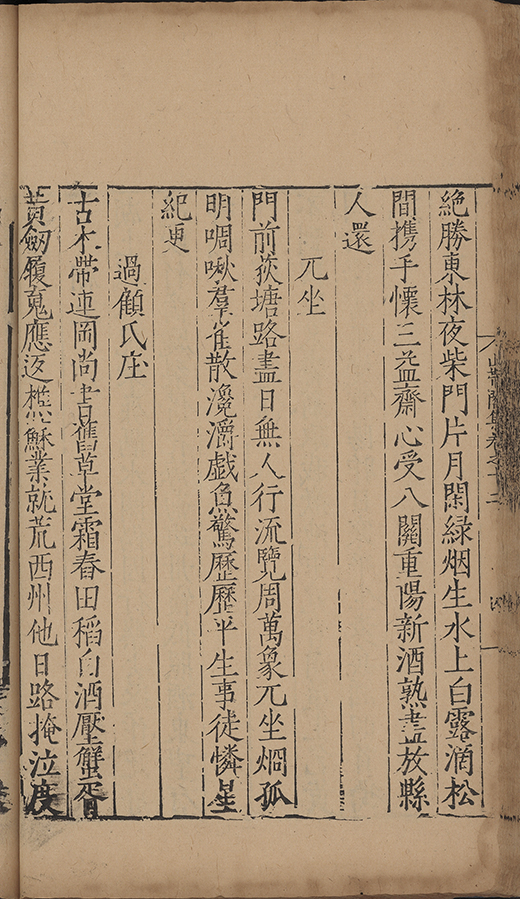 絶勝東林夜柴門片月閑緑烟生水上白露滴松
間携手懷三益齋心受八關重陽新酒熟盡放縣
人還
兀坐
門前荻塘路盡日無人行流覽周萬象兀坐烱孤
明啁啾羣雀散瀺灂戲魚驚歷歷平生事徒憐星
紀更
過顧氏庄
古木帶連岡尚書舊草堂霜舂田稻白酒壓蟹胥
黄劒履寃應返樵蘇業就荒西州他日路掩泣度